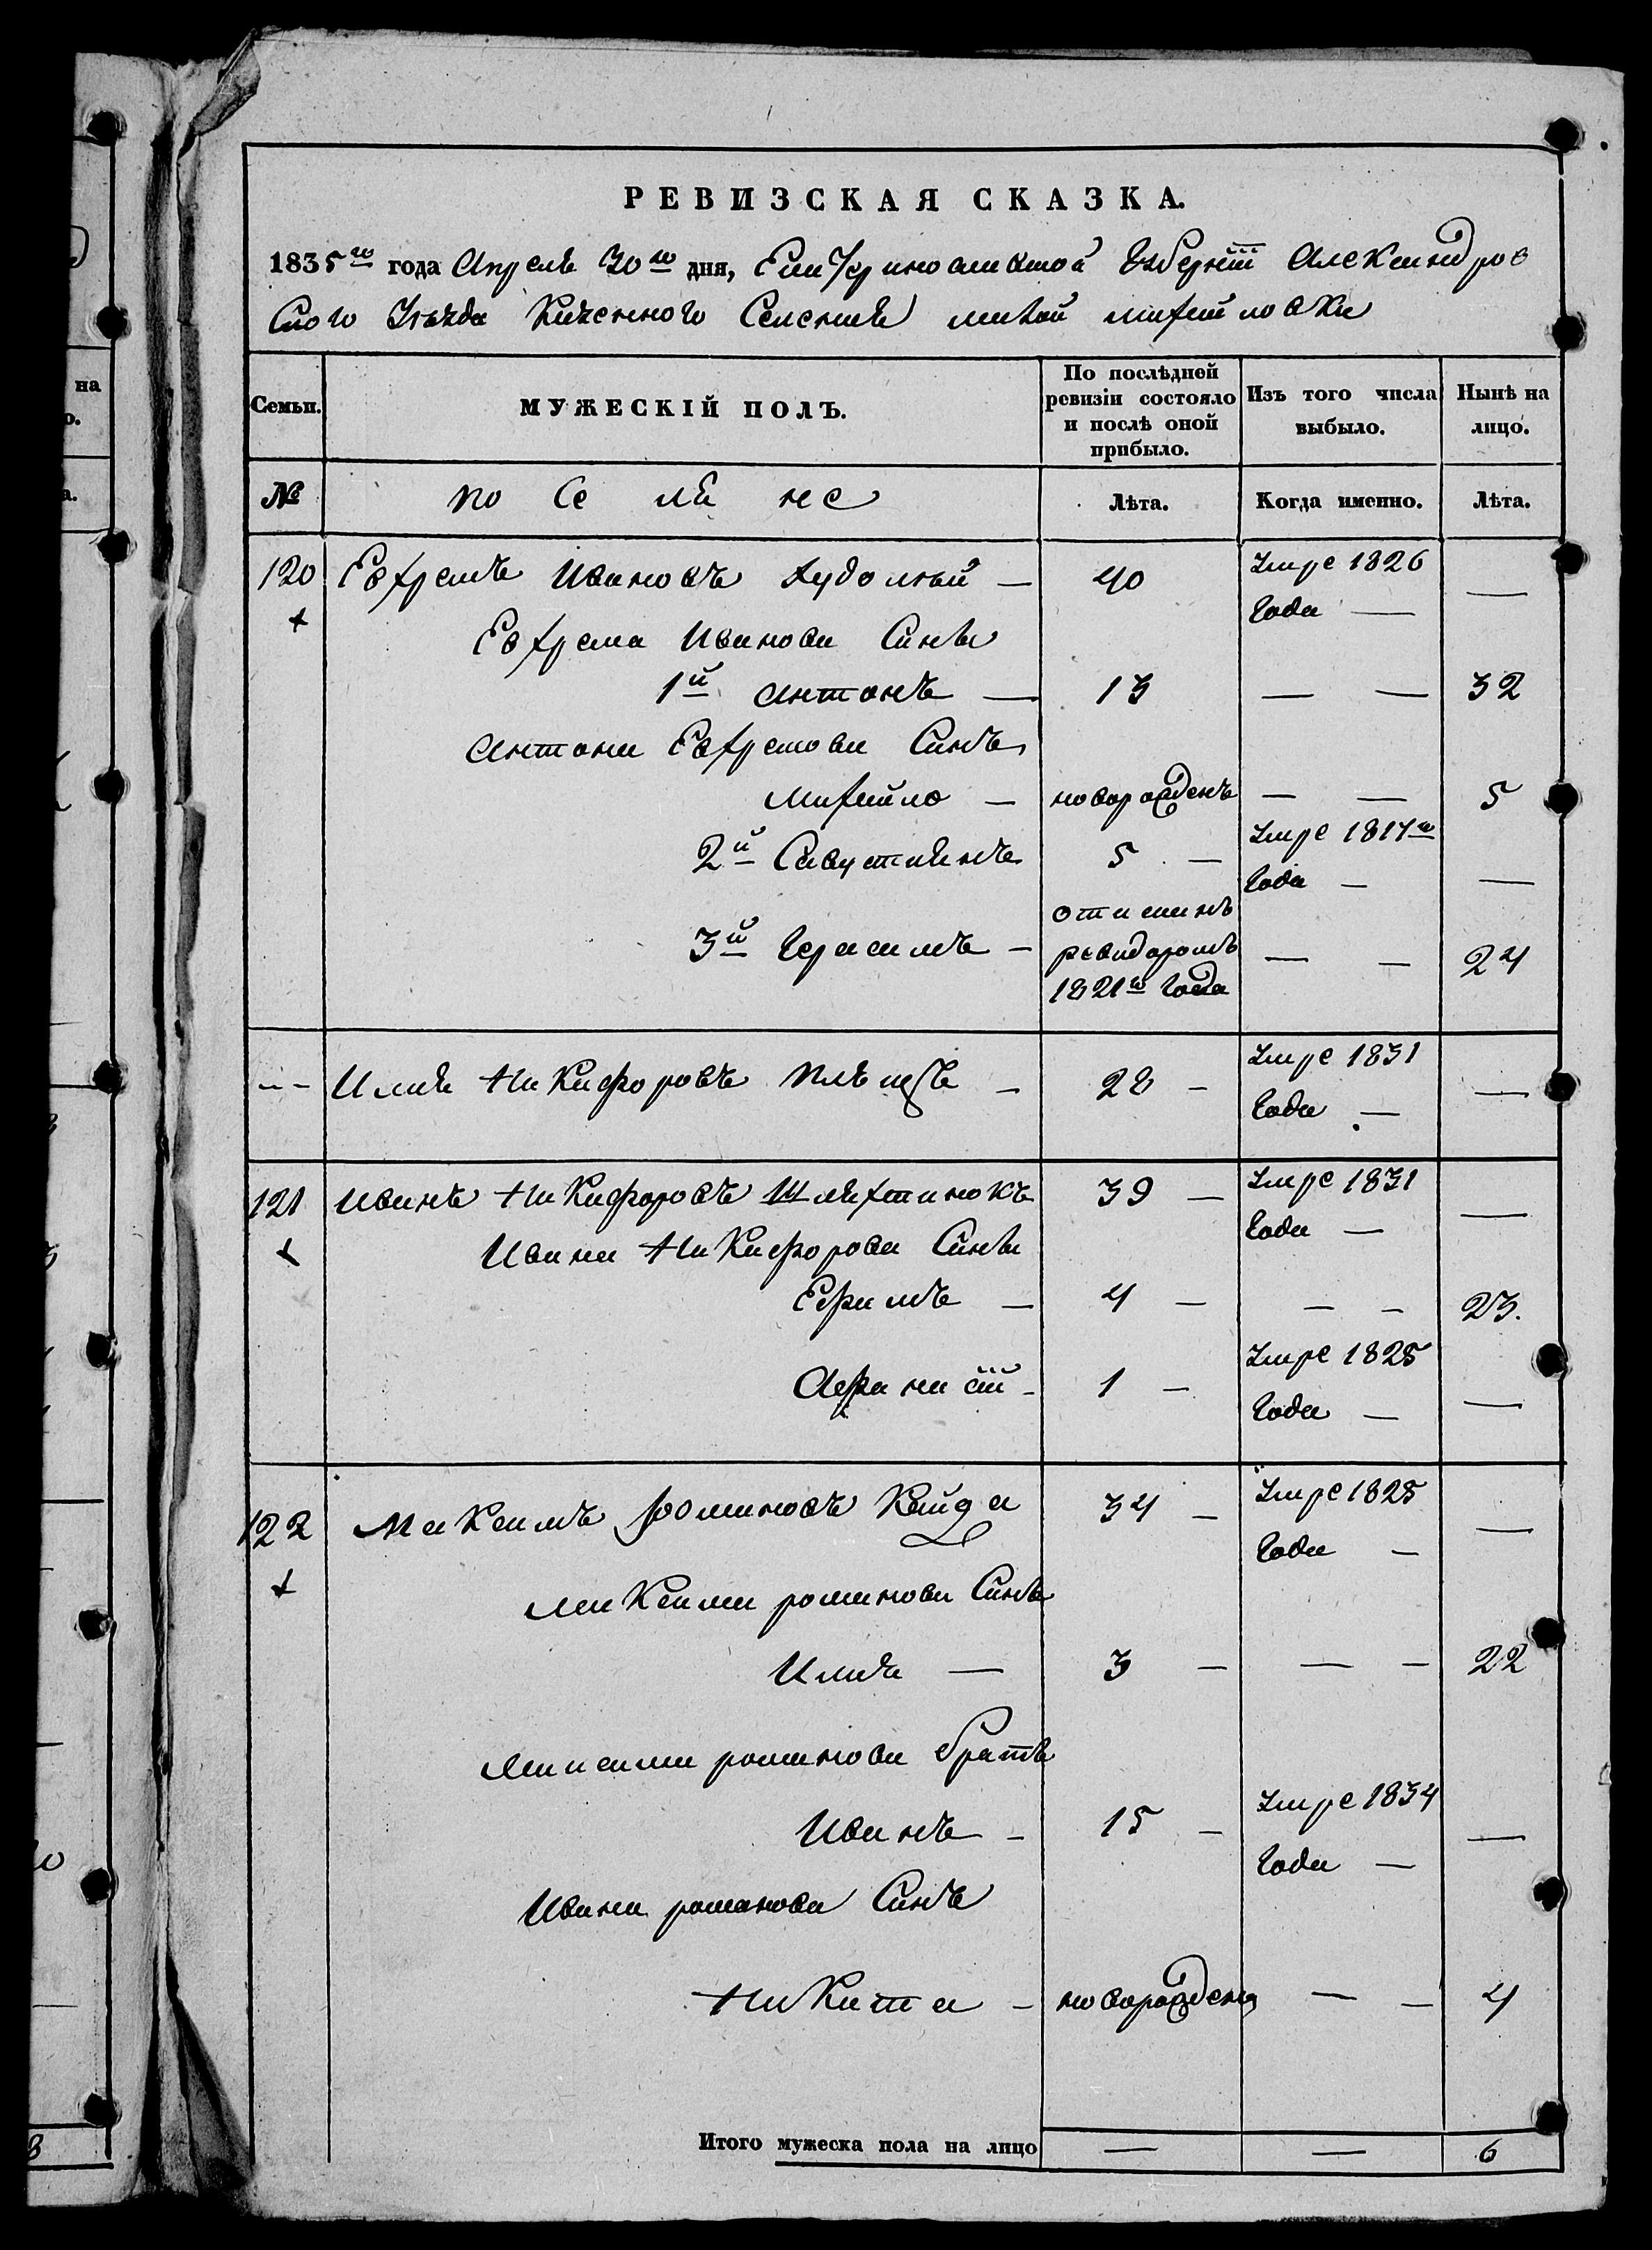 РЕВИЗСКАЯ СКАЗКА.
1835го года Апреля 30го дня, Екатеринославской Губернїи Александров
Скаго Уѣзда Казенного Селения малой михайловки
Семьи.
МУЖЕСКІЙ ПОЛЪ.
По послѣдней ревизіи состояло и послѣ оной прибыло.
Изъ того числа выбыло.
Нынѣ на лицо.
№
поселяне
Лѣта.
Когда именно.
Лѣта.
120 Евфремъ Ивановъ Худолѣй — 40 Умре 1826 года — —
Евфрема Иванова Сины
1й Антонъ — 13 — — 32
Антона Евфремова Синъ
михайло — новорожденъ — — 5
2й Савустиянъ 5 — Умре 1817го года — —
3й Герасимъ — отисканъ ревидоромъ 1821го года — — 24
Илия Никифоровъ — 28 — Умре 1831 года — —
121 Иванъ Никифоровъ Шляхтинокъ 39 — Умре 1831 года — —
Ивана Никифорова Сины
Ефимъ — 4 — — — 23.
Афанасїй — 1 — Умре 1825 года — —
122 Максимъ романовъ Кайда 34 — Умре 1825 года — —
Максима романова Синъ
Илия — 3 — — — 22
Максима романова братъ
Иванъ — 15 — Умре 1834 года — —
Ивана романова Синъ
Никита — новорожденъ — — 4
Итого мужеска пола на лицо — — 6
на